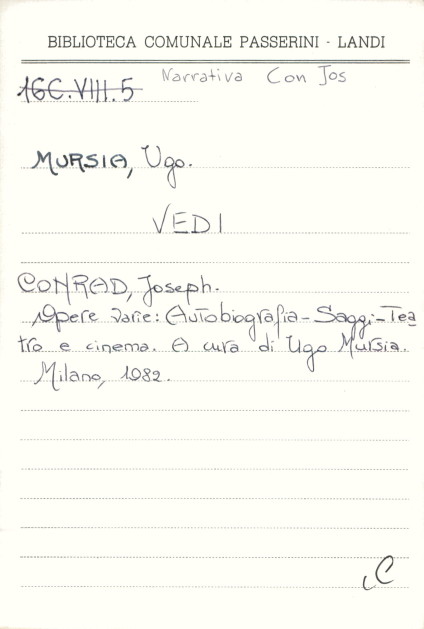 BIBLIOTECA COMUNALE PASSERINI - LANDI
16C.VIII.5 Narrativa Con Jos
MURSIA, Ugo.
VEDI
CONRAD, Joseph.
Opere varie: Autobiografia - Saggi - Tea
tro e cinema. A cura di Ugo Mursia.
Milano, 1982.
C